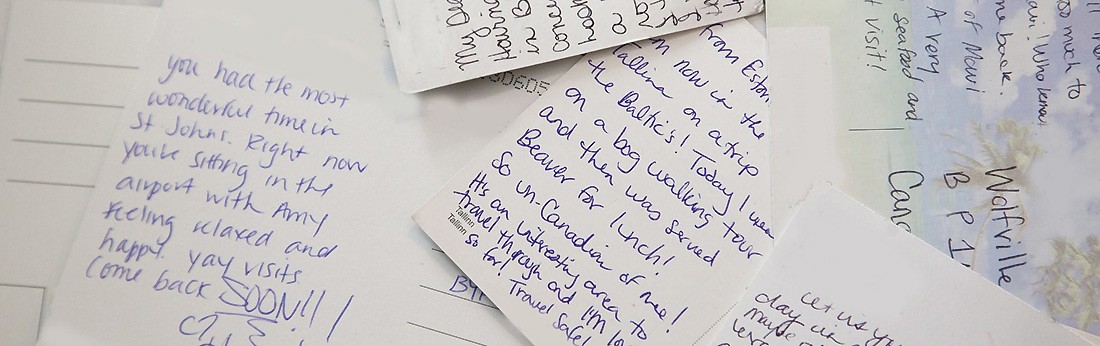 you had the most
wonderful time in
St Johns. Right now
you're sitting in the
airport with Amy
feeling relaxed and
happy. yay visits
Come back SOON!!!
My
in B
a
80605
from
now in the
Tallinn on a trip
the Baltics! Today I
on a bog walking tour
and then was served
Beaver for lunch!
So un-Canadian of me!
It's an interesting area to
travel through and I'm
so
far! Travel Safe!
Tallinn
Tallinn
much to
! Who knows
me back.
of Maui
A very
seafood and
visit!
Wolfville
B P 1
Let us
day
maybe